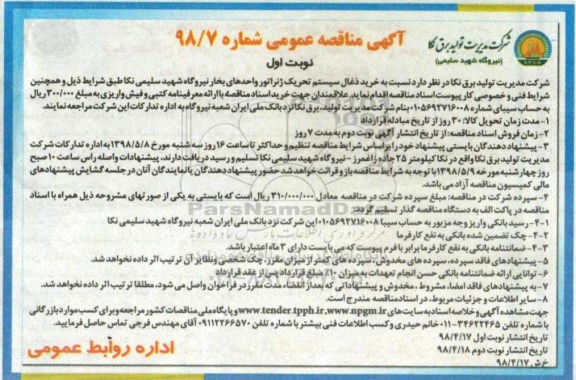 شرکت مدیریت تولید برق نکا
(نیروگاه شهید سلیمی)
آگهی مناقصه عمومی شماره ۹۸/۷
نوبت اول
شرکت مدیریت تولید برق نکا در نظر دارد نسبت به خرید ذغال سیستم تحریک ژنراتور واحدهای بخار نیروگاه شهید سلیمی نکا طبق شرایط ذیل و همچنین
شرایط فنی و خصوصی کار پیوست اسناد مناقصه اقدام نماید. علاقمندان جهت خرید اسناد مناقصه با ارائه معرفینامه کتبی و فیش واریزی به مبلغ ۳۰۰/۰۰۰ ریال
به حساب سیبای شماره ۰۱۰۵۶۹۲۷۱۶۰۰۸ بنام شرکت مدیریت تولید برق نکا نزد بانک ملی ایران شعبه نیروگاه به اداره تدارکات این شرکت مراجعه نمایند.
۱- مدت زمان تحویل کالا: ۳۰ روز از تاریخ مبادله قرارداد
۲- زمان فروش اسناد مناقصه: از تاریخ انتشار آگهی نوبت دوم به مدت ۷ روز
۳- پیشنهاد دهندگان بایستی پیشنهاد خود را براساس شرایط مناقصه تنظیم و حداکثر تا ساعت ۱۶ روز سه شنبه مورخ ۱۳۹۸/۵/۸ به اداره تدارکات شرکت
مدیریت تولید برق نکا واقع در نکا کیلومتر ۲۵ جاده زاغمرز - نیروگاه شهید سلیمی نکا تسلیم و رسید دریافت دارند. پیشنهادات واصله راس ساعت ۱۰ صبح
روز چهارشنبه مورخه ۱۳۹۸/۵/۹ با توجه به شرایط مناقصه باز و قرائت خواهد شد حضور پیشنهاد دهندگان یا نمایندگان آنان در جلسه گشایش پیشنهادهای
مالی کمیسیون مناقصه آزاد می باشد.
۴- سپرده شرکت در مناقصه: مبلغ سپرده شرکت در مناقصه معادل ۳۱۰/۰۰۰/۰۰۰ ریال است که بایستی به یکی از صورتهای مشروحه ذیل همراه با اسناد
مناقصه در پاکت الف به دستگاه مناقصه گذار تسلیم گردد.
۴-۱- رسید بانکی واریز وجه مزبور به حساب سیبا ۰۱۰۵۶۹۲۷۱۶۰۰۸ این شرکت نزد بانک ملی ایران شعبه نیروگاه شهید سلیمی نکا
۴-۲- چک تضمین شده بانکی به نفع کارفرما
۴-۳- ضمانتنامه بانکی به نفع کارفرما برابر با فرم پیوست که می بایست دارای ۳ ماه اعتبار باشد.
۵- پیشنهادهای فاقد سپرده، سپرده های مخدوش، سپرده های کمتر از میزان مقرر، چک شخصی ونظایر آن ترتیب اثر داده نخواهد شد.
۶- توانایی ارائه ضمانتنامه بانکی حسن انجام تعهدات به میزان ۱۰٪ مبلغ قرارداد پس از عقد قرارداد
۷- به پیشنهادهای فاقد امضا، مشروط، مخدوش و پیشنهاداتی که بعد از انقضاء مدت مقرر در فراخوان واصل می شود، مطلقا ترتیب اثر داده نخواهد شد.
۸- سایر اطلاعات و جزئیات مربوط، در اسناد مناقصه مندرج است.
جهت مشاهده آگهی و خلاصه اسناد به سایت های www.tender.tpph.ir, www.npgm.ir و پایگاه ملی مناقصات کشور مراجعه و برای کسب موارد بازرگانی
با شماره تلفن ۳۴۶۲۲۴۶۵-۰۱۱ خانم حیدری و کسب اطلاعات فنی بیشتر با شماره تلفن ۰۹۱۱۲۲۶۶۵۷۰ آقای مهندس فرجی تماس حاصل فرمایید.
تاریخ انتشار نوبت اول ۹۸/۴/۱۷
تاریخ انتشار نوبت دوم ۹۸/۴/۱۸
خ ش ۹۸/۴/۱۷
اداره روابط عمومی
ParsNamadData